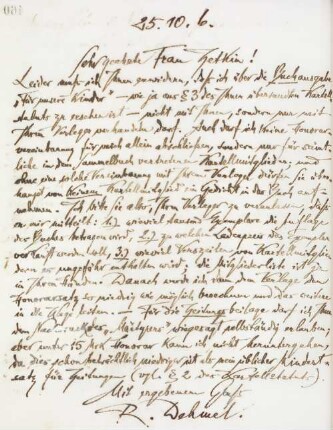 25.10.6.
Sehr geehrte Frau Zetkin!
Leider muß ich Ihnen erwidern, daß ich über die Buchausgabe
„Für unsere Kinder“ – wie ja aus § 3 des Ihnen übersandten Kartell-
statuts zu ersehen ist – nicht mit Ihnen, sondern nur mit
Ihrem Verleger verhandeln darf. Auch darf ich keine Honorar-
vereinbarung für mich allein abschließen, sondern nur für sämt-
liche in dem Sammelbuch vertretenen Kartellmitglieder, und
ohne eine solche Vereinbarung mit Ihrem Verleger dürfen Sie über-
haupt von keinem Kartell ein Gedicht in das Buch auf-
nehmen. Ich bitte Sie also, Ihren Verleger zu veranlassen, daß
er mir mitteilt: 1) wieviel tausend Exemplare die Auflage
des Buches betragen wird, 2) zu welchem Ladenpreis das Exemplar
verkauft werden soll, 3) wieviel Verszeilen von Kartellmitglie-
dern es ungefähr enthalten wird; die Mitgliederliste ist ja
in Ihren Händen. Danach würde ich dann den
Honorarsatz so niedrig wie möglich berechnen und das weitere
in die Wege leiten. – Für die Zeitungsbeilage darf ich Ihnen
den Nachdruck des „ “ vollständig erlauben,
aber unter 15 Mk Honorar kann ich nicht heruntergehen,
da dies schon beträchtlich niedriger ist als mein üblicher Mindest-
satz für Zeitungen (vgl. § 2 der Kartellstatuten).
Mit ergebenem Gruß
R. Dehmel.